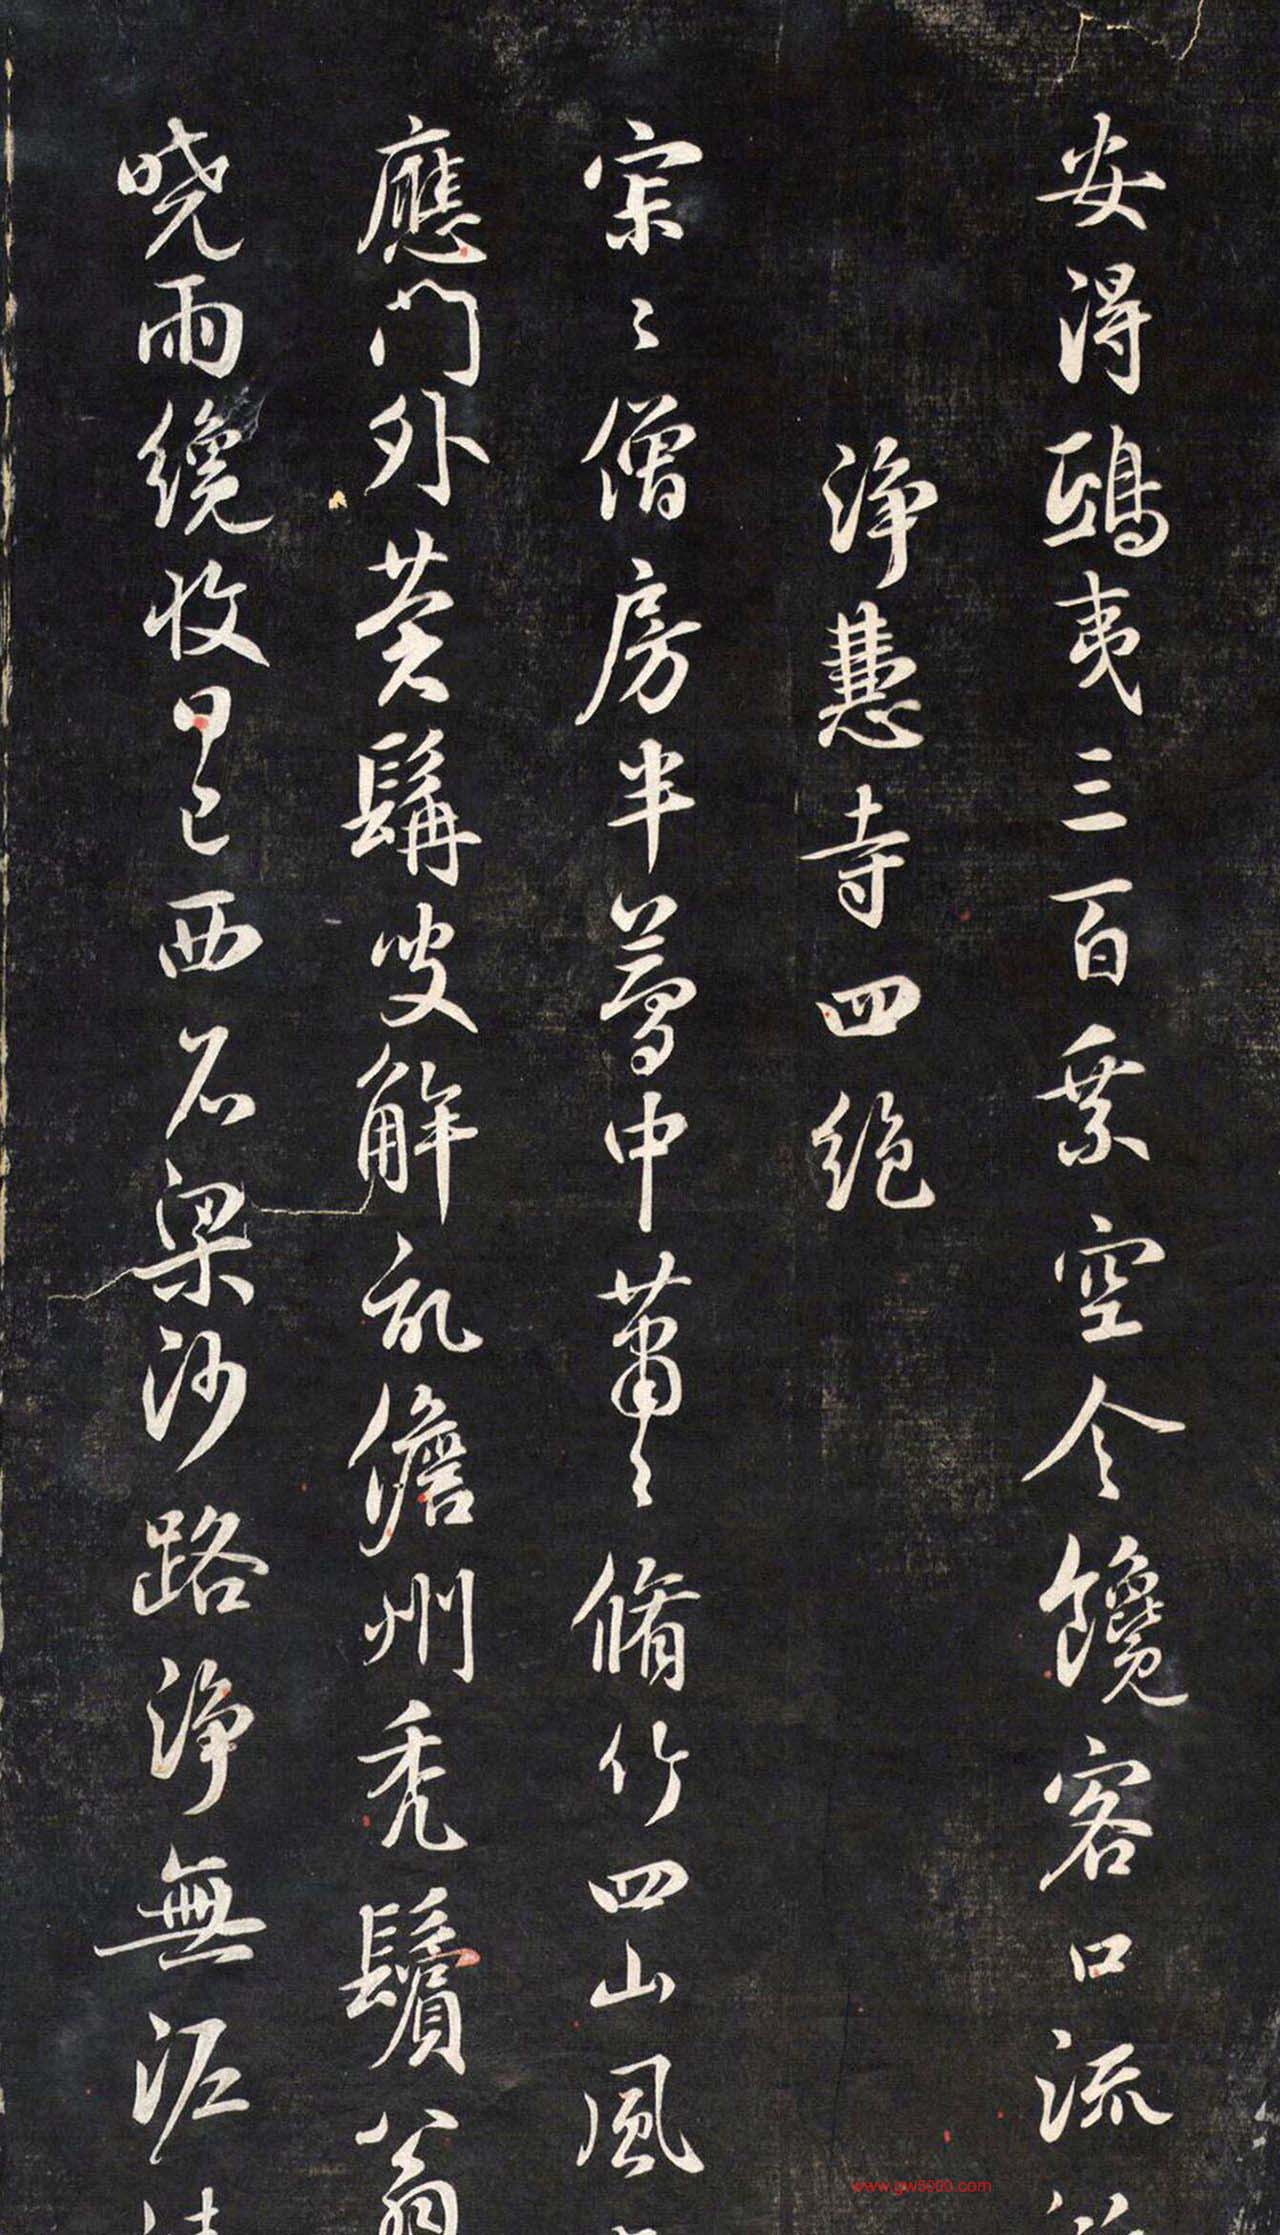 安得鴟夷三百乘空令饞客口流
淨慧寺四絕
宗〻僧房半夢中蕭〻脩竹四山風
應門外髯叟解就儋州禿鬢翁
曉雨纔收日已西石梁沙路淨無泥
www.gw5000.com